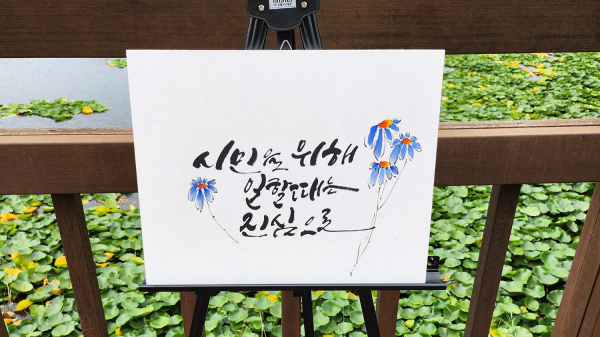 시민을 위해
일할 때는
진심으로